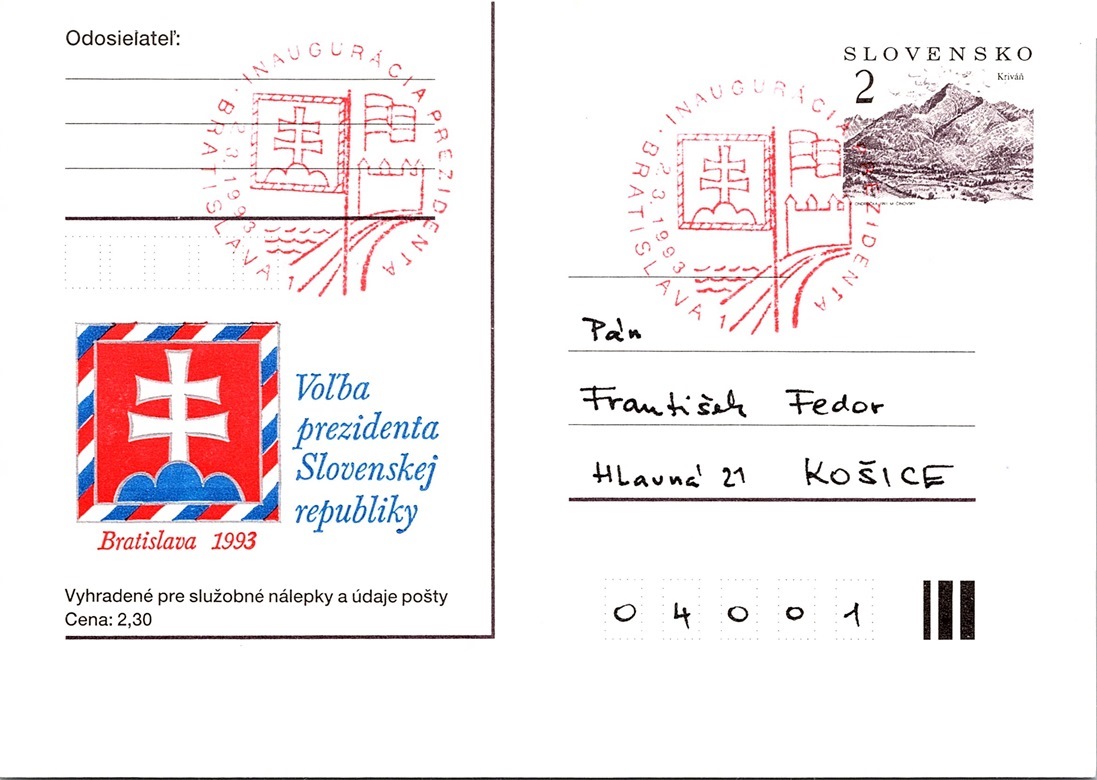 Odosielateľ:
INAUGURÁCIA PREZIDENTA
2.3.1993
BRATISLAVA 1
Voľba
prezidenta
Slovenskej
republiky
Bratislava 1993
Vyhradené pre služobné nálepky a údaje pošty
Cena: 2,30
SLOVENSKO
2
Kriváň
INAUGURÁCIA PREZIDENTA
2.3.1993
BRATISLAVA 1
Pán
František Fedor
Hlavná 21 KOŠICE
04001